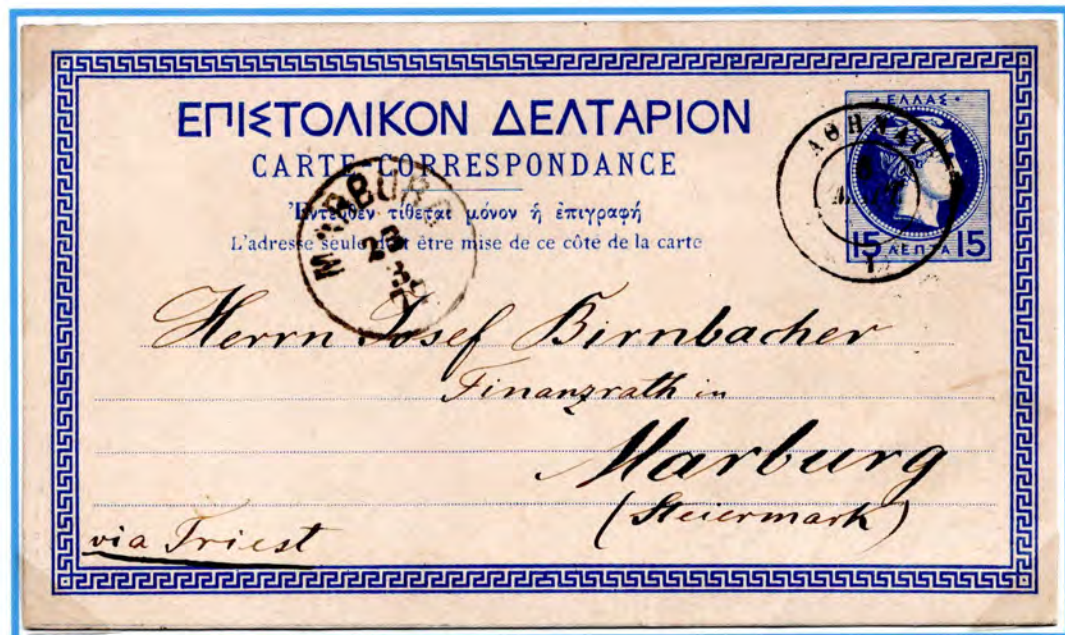 ΕΠΙΣΤΟΛΙΚΟΝ ΔΕΛΤΑΡΙΟΝ
CARTE-CORRESPONDANCE
Ἐντεῦθεν τίθεται μόνον ἡ ἐπιγραφή
L'adresse seule doit être mise de ce côté de la carte
ΕΛΛΑΣ
15 ΛΕΠΤΑ 15
ΑΘΗΝΑΙ
MARBURG
Herrn Josef Birnbacher
Finanzrath in
Marburg
(Steiermark)
via Triest